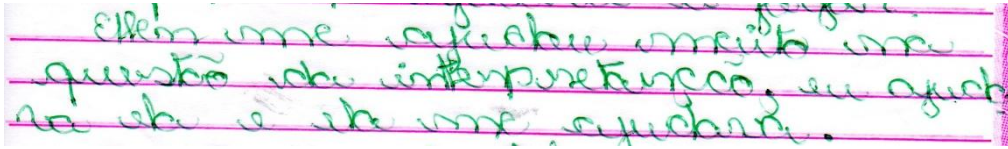 Ellen me ajudou muito na
questão da interpretançcão, eu ajud
va ela e ela me ajudava.